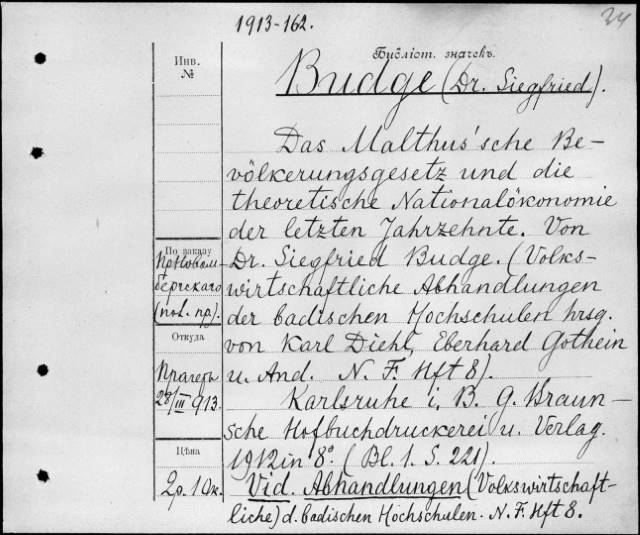 1913-162.
34
Библіот. значекъ.
Инв.
№
Budge (Dr. Siegfried).
Das Malthus'sche Be-
völkerungsgesetz und die
theoretische Nationalökonomie
der letzten Jahrzehnte. Von
Dr. Siegfried Budge. (Volks-
wirtschaftliche Abhandlungen
der badischen Hochschulen hrsg.
von Karl Diehl, Eberhard Gothein
u. And. N. F. Hft 8).
Karlsruhe i. B. G. Braun-
sche Hofbuchdruckerei u. Verlag.
1912 in 8° (Bl. 1. S. 221).
Vid. Abhandlungen (Volkswirtschaft-
liche) d. badischen Hochschulen. N. F. Hft 8.
По заказу
бергскаго
Откуда
Прагеръ
28/III 913.
Цѣна
2р. 10к.